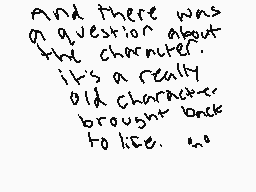 And there was
a question about
the character.
it's a really
old character
brought back
to life. "n"